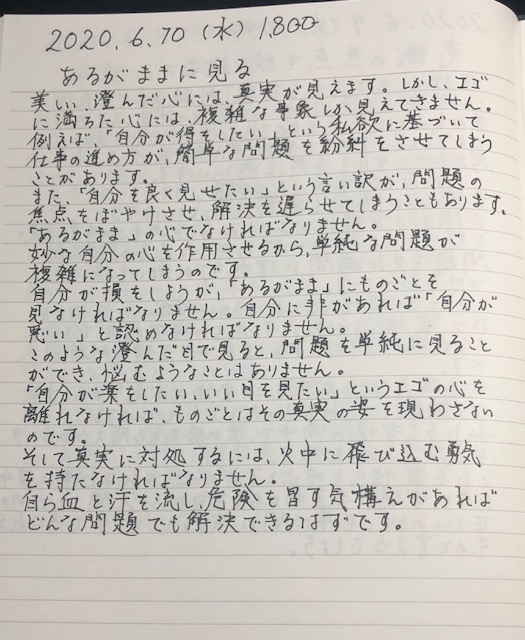 2020.6.10 (水) 1,800
あるがままに見る
美しい、澄んだ心には、真実が見えます。しかし、エゴ
に満ちた心には、複雑な事象しか見えてきません。
例えば、「自分が得をしたい」という私欲に基づいて
仕事の進め方が、簡単な問題を紛糾をさせてしまう
ことがあります。
また、「自分を良く見せたい」という言い訳が、問題の
焦点をぼやけさせ、解決を遅らせてしまうこともあります。
「あるがまま」の心でなければなりません。
妙な自分の心を作用させるから、単純な問題が
複雑になってしまうのです。
自分が損をしようが、「あるがまま」にものごとを
見なければなりません。自分に非があれば「自分が
悪い」と認めなければなりません。
このような澄んだ目で見ると、問題を単純に見ること
ができ、悩むようなことはありません。
「自分が楽をしたい、いい目を見たい」というエゴの心を
離れなければ、ものごとはその真実の姿を現わさない
のです。
そして真実に対処するには、火中に飛び込む勇気
を持たなければなりません。
自ら血と汗を流し、危険を冒す気構えがあれば
どんな問題でも解決できるはずです。